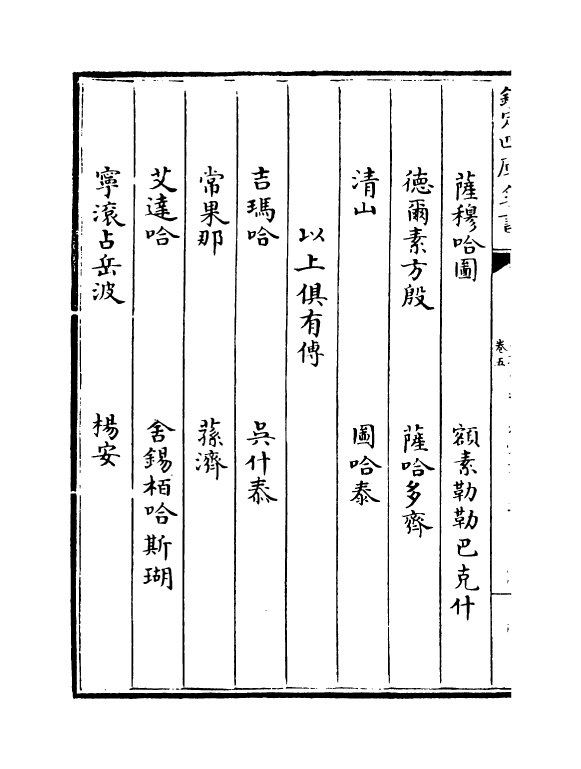 欽定四庫全書
卷五
薩穆哈圖　額素勒勒巴克什
德爾素方殷　薩哈多齊
清山　圖哈泰
以上俱有傳
吉瑪哈　吳什泰
常果那　蓀濟
艾達哈　舍錫栢哈斯瑚
寧滾占岳波　楊安